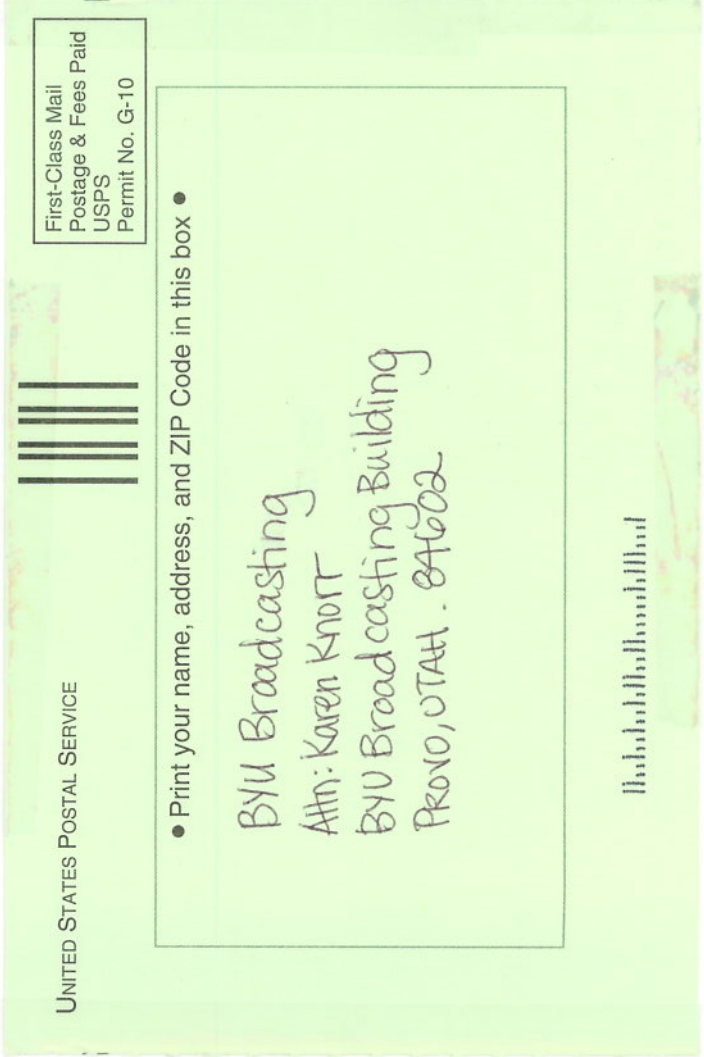 UNITED STATES POSTAL SERVICE
First-Class Mail
Postage & Fees Paid
USPS
Permit No. G-10
• Print your name, address, and ZIP Code in this box •
BYU Broadcasting
Attn: Karen Knorr
BYU Broadcasting Building
PROVO, UTAH. 84602